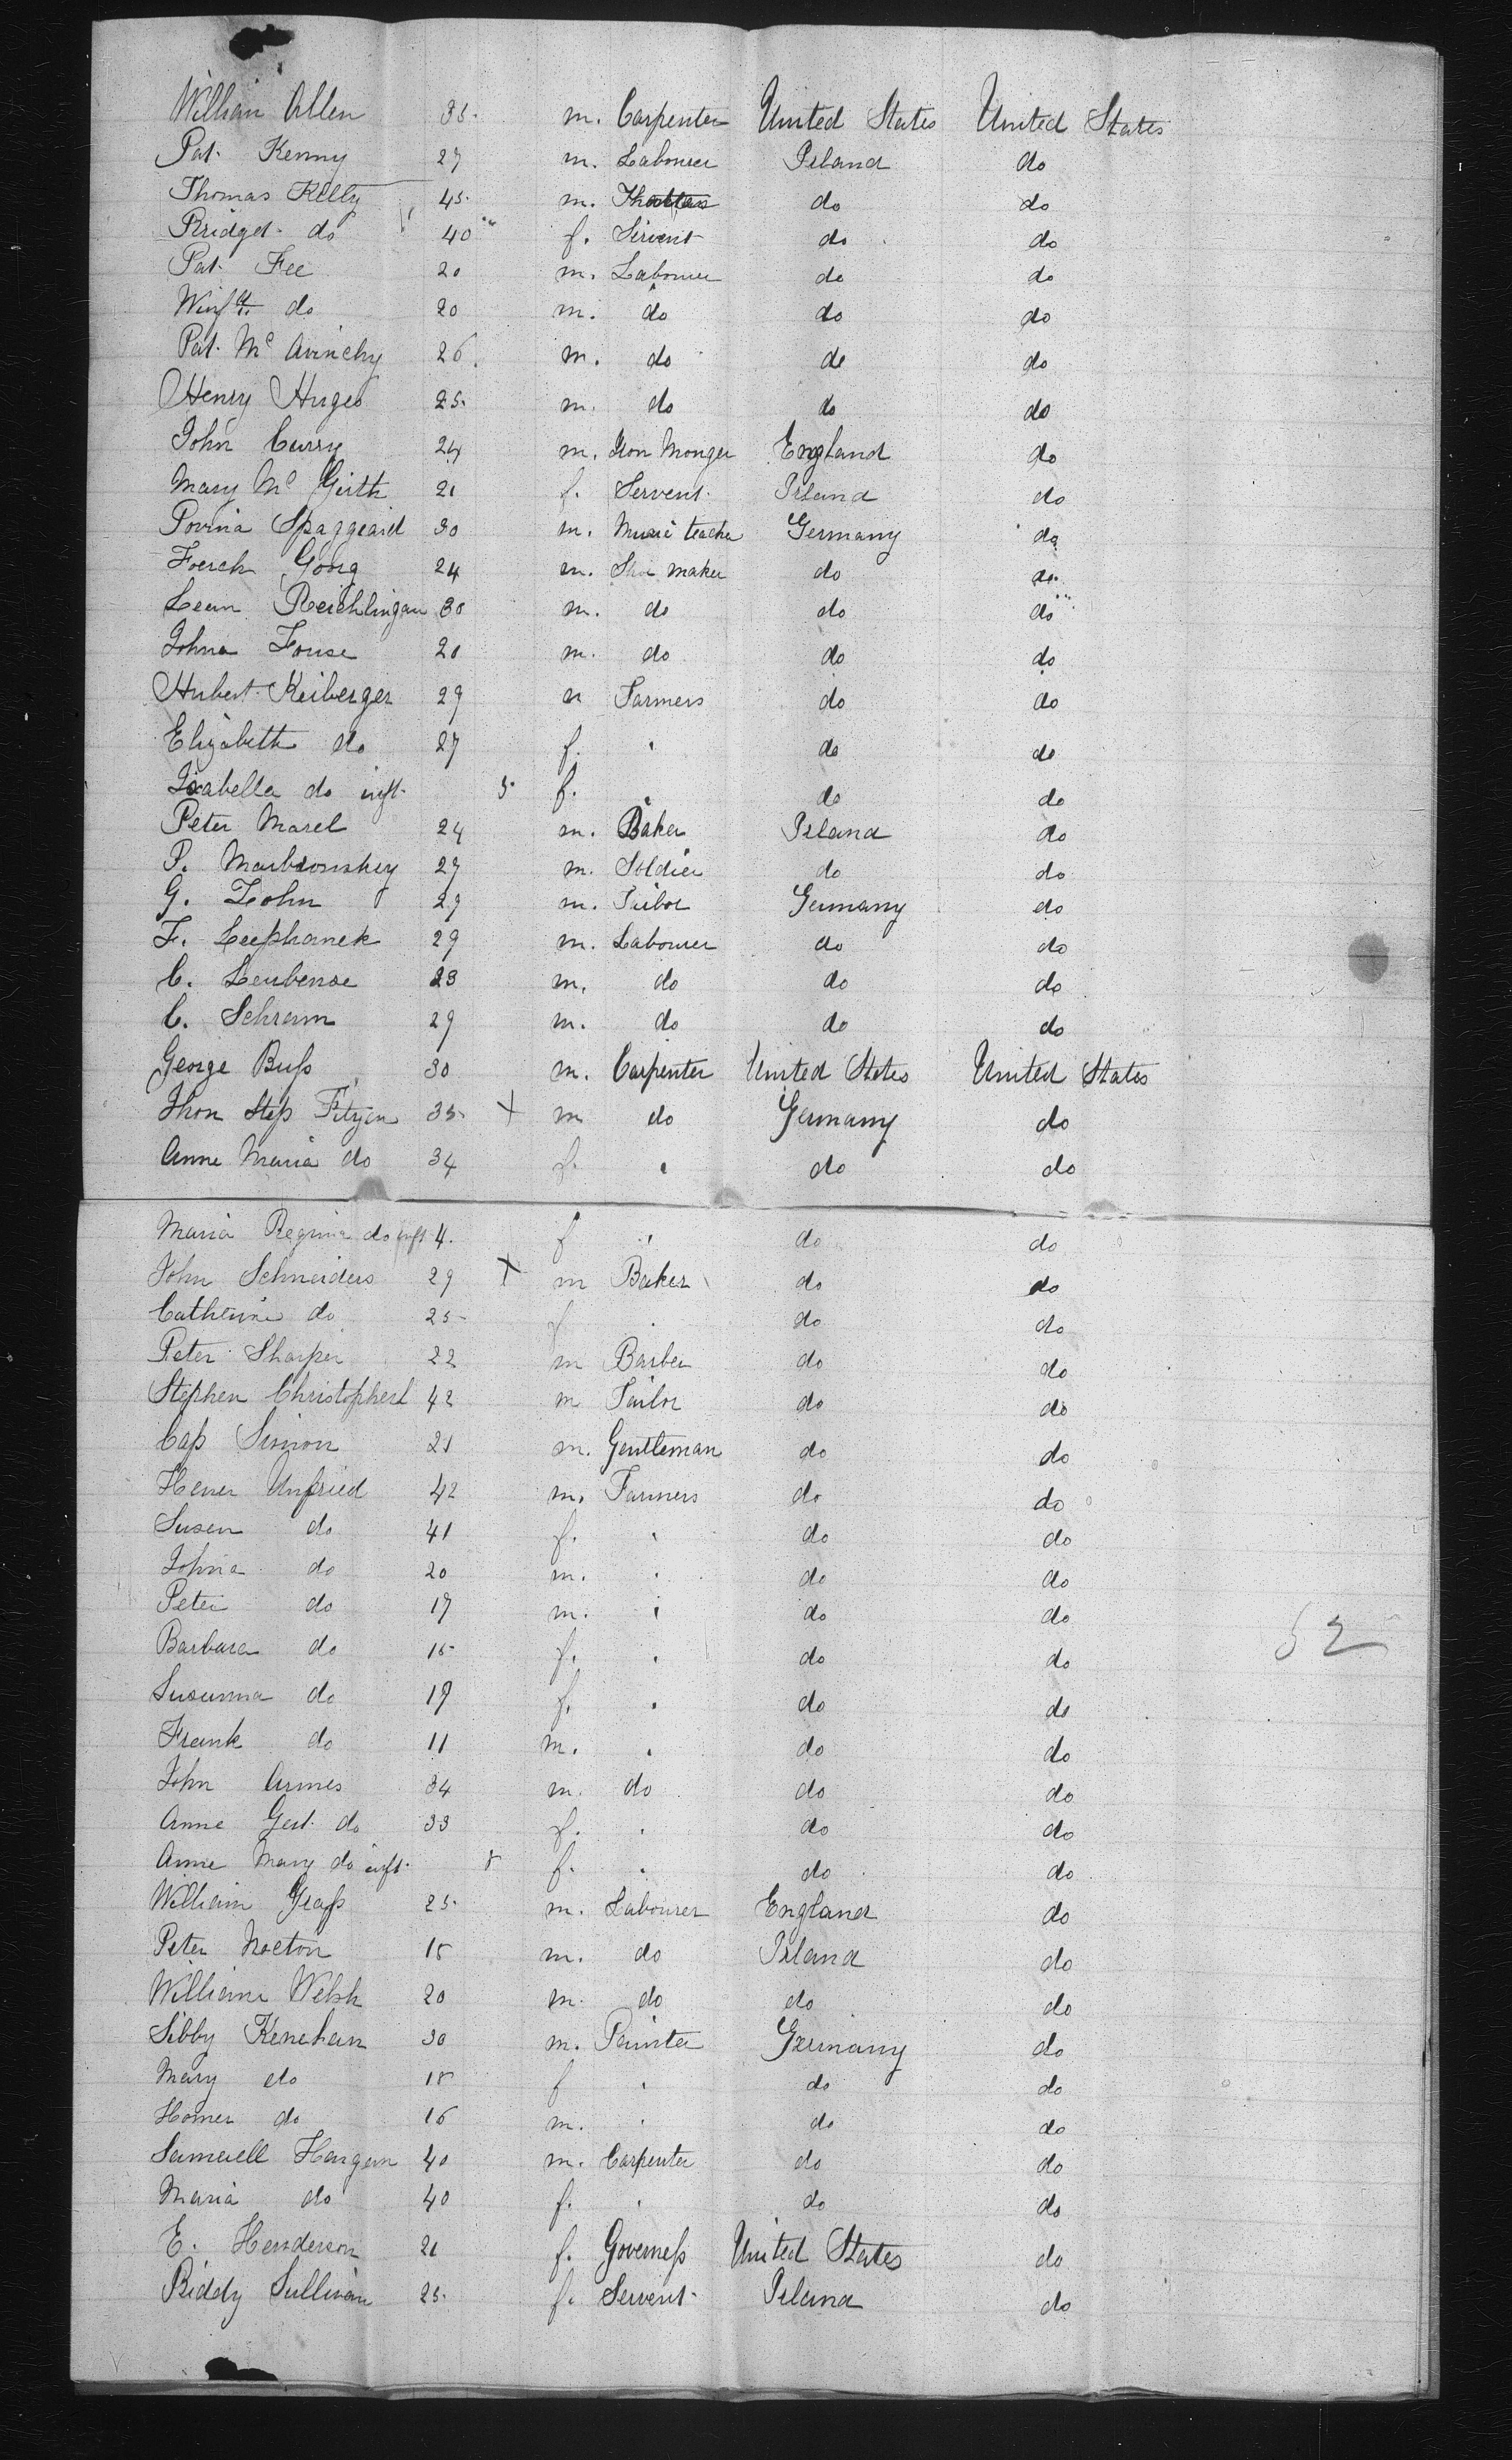 William Allen 35. m. Carpenter United States United States
Pat. Kenny 27 m. Labourer Ireland do
Thomas Kelly 45. m. do do
Bridget do 40 f. Servent do do
Pat. Fee 20 m. Labourer do do
do 20 m. do do do
Pat. Mc Avinchy 26. m. do do do
Henry Huges 25. m. do do do
John Curry 24 m. Iron Monger England do
Mary Mc Girth 21 f. Servent Ireland do
30 m. Music teacher Germany do
Foerch Goorg 24 m. Shoe maker do do
Reichlingan 30 m. do do do
Johna Fouse 20 m. do do do
Hubert Keiberger 29 m Farmers do do
Elizabeth do 27 f. " do do
Isabella do inft. 5. f. " do do
Peter Marel 24 m. Baker Ireland do
P. 27 m. Soldier do do
G. Zohn 29 m. Tailor Germany do
F. Leephanek 29 m. Labourer do do
C. Leubense 23 m. do do do
C. Schram 29 m. do do do
George Buss 30 m. Carpenter United States United States
Jhon Step 35 + m do Germany do
Anne Maria do 34 f. " do do
Maria Regina do inft 4. f " do do
John Schneiders 29 + m Baker do do
Catherine do 25 f " do do
Peter Sharper 22 m Barber do do
Stephen Christopherl 42 m Tailor do do
Cap Simon 21 m. Gentleman do do
Hener Unfried 42 m. Farmers do do
Susen do 41 f. " do do
Johna do 20 m. " do do
Peter do 17 m. " do do
Barbara do 15 f. " do do
Susanna do 19 f. " do do
Frank do 11 m. " do do
John Armes 34 m. do do do
Anne Gert. do 33 f. " do do
Anne Mary do inft. 8 f. " do do
William 25. m. Labourer England do
Peter Nocton 18 m. do Ireland do
William Welsh 20 m. do do do
Sibby Kenehan 30 m. Painter Germany do
Mary do 18 f " do do
Homer do 16 m. " do do
Samuell Hargan 40 m. Carpenter do do
Maria do 40 f. " do do
E. Henderson 21 f. Governess United States do
Biddy Sullivan 25. f. Servent Ireland do
52